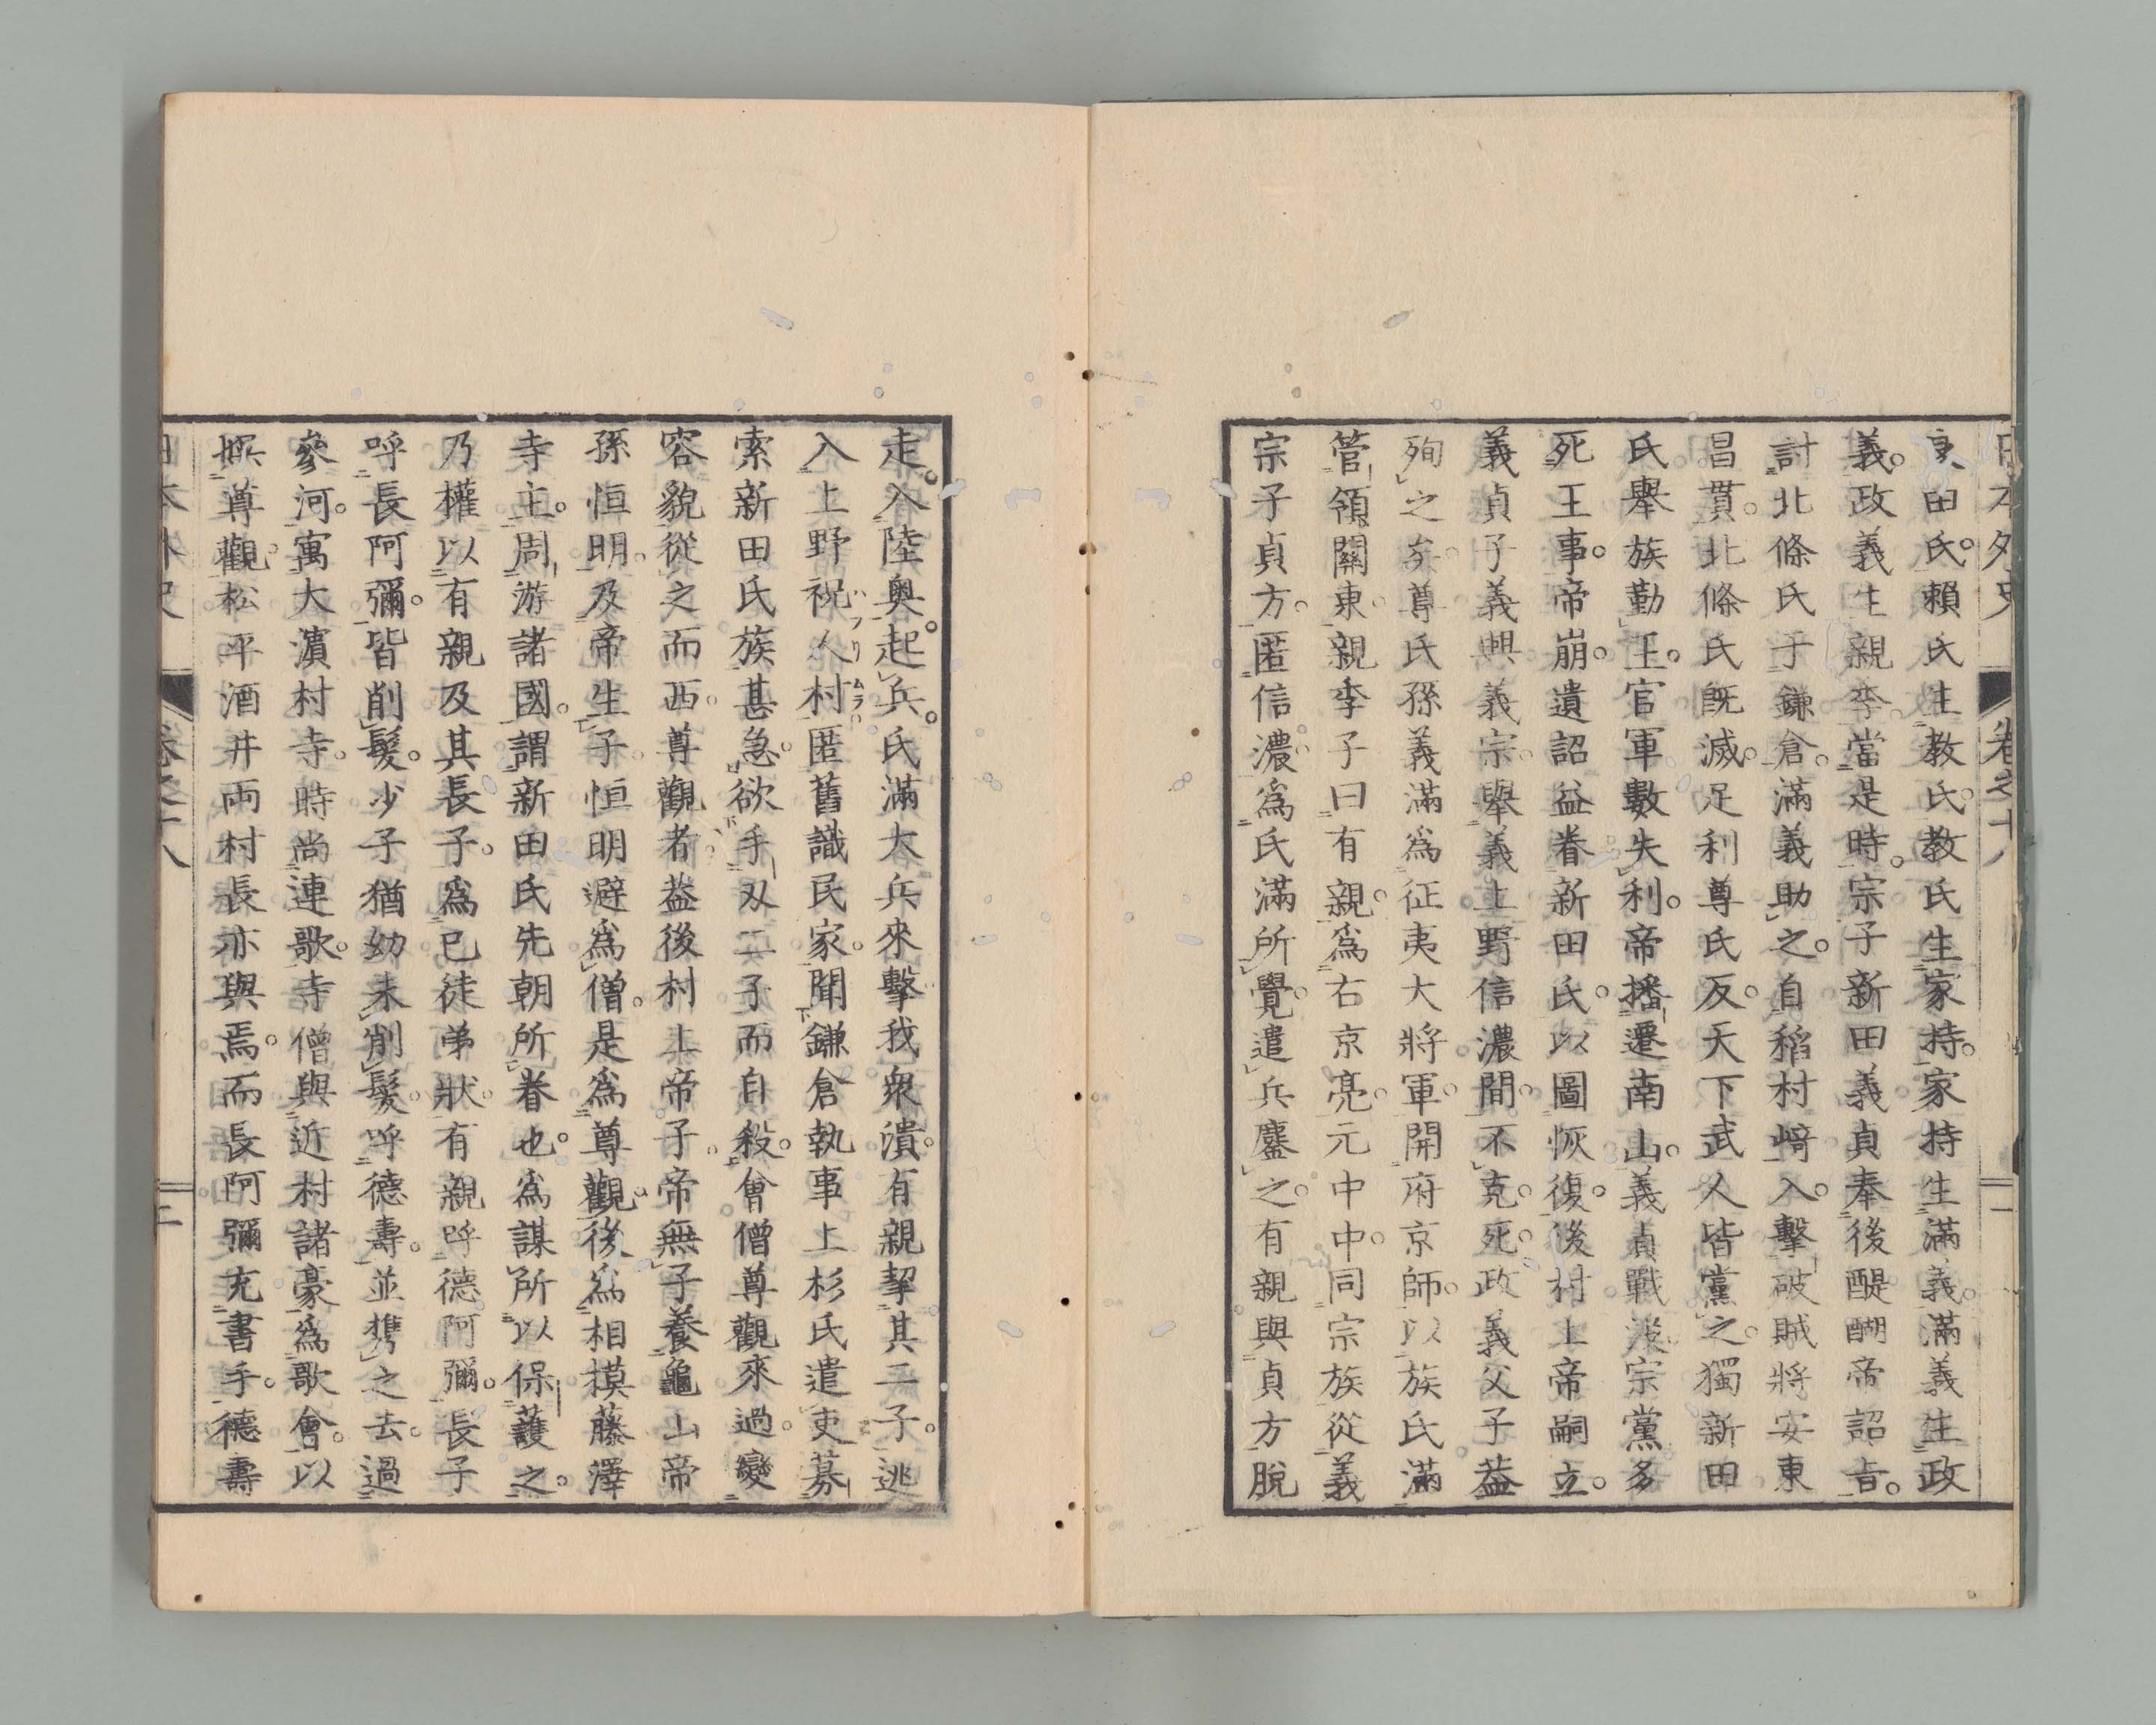 日本外史 卷之十八 一
良田氏。賴氏生教氏。教氏生家持。家持生滿義。滿義生政
義。政義生親李。當是時。宗子新田義貞奉後醍醐帝詔旨。
討北條氏于鎌倉。滿義助之。自稻村﨑入。擊破賊將安東
昌賈。北條氏既滅。足利尊氏反。天下武人皆黨之。獨新田
氏舉族勤王。官軍數失利。帝播遷南山。義貞戰沒。宗黨多
死王事。帝崩。遺詔益眷新田氏。以圖恢復。後村上帝嗣立。
義貞子義興義宗。舉義上野信濃間。不克。死。政義父子益
殉之矣。尊氏孫義滿爲征夷大將軍。開府京師。以族氏滿
管領關東。親李子曰有親。爲右京亮。元中中。同宗族從義
宗子貞方。匿信濃。爲氏滿所覺。遣兵鏖之。有親與貞方脫
走。入陸奧。起兵。氏滿大兵來擊。我衆潰。有親挈其二子。逃
入上野祝人村。匿舊識民家。聞鎌倉執事上杉氏遣吏募
ハフリムラ
索新田氏族甚急。欲手刃二子而自殺。會僧尊觀來過。變
容貌從之而西。尊觀者。益後村上帝子。帝無子。養龜山帝
孫恒明。及帝生子。恒明避爲僧。是爲尊觀。後爲相摸藤澤
寺主。周游諸國。謂新田氏先朝所眷也。爲謀所以保護之。
乃權以有親及其長子。爲已徒弟狀。有親呼德阿彌。長子
呼長阿彌。皆削髮。少子猶幼未削髮。呼德壽。並携之去。過
參河。寓大濱村寺。時尚連歌。寺僧與近村諸豪爲歌會。以
娯尊觀。松平酒井兩村長亦與焉。而長阿彌充書手。德壽
日本外史 卷之十八 二